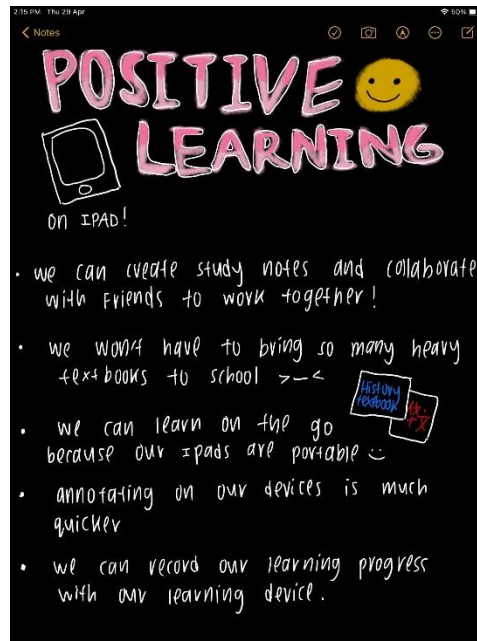 2:15 PM Thu 29 Apr
50%
Notes
POSITIVE
LEARNING
on IPAD!
• we can create study notes and collaborate
with Friends to work together!
• we won't have to bring so many heavy
textbooks to school >_<
History
textbook
• we can learn on the go
because our Ipads are portable
• annotating on our devices is much
quicker
• we can record our learning progress
with our learning device.